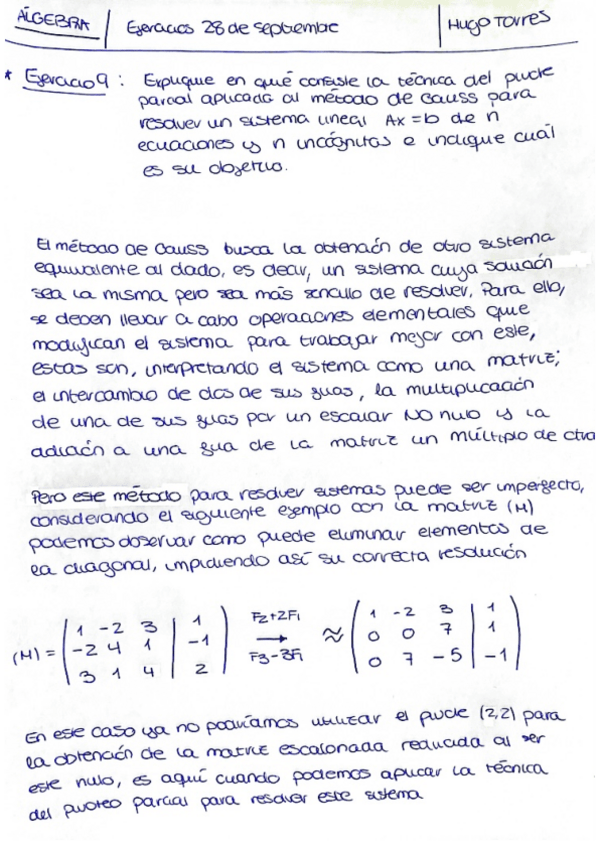 ÁLGEBRA | Ejercicios 28 de septiembre | Hugo Torres
* Ejercicio 9: Explique en qué consiste la técnica del pivote
parcial aplicada al método de Gauss para
resolver un sistema lineal Ax = b de n
ecuaciones y n incógnitas e indique cuál
es su objetivo.
El método de Gauss busca la obtención de otro sistema
equivalente al dado, es decir, un sistema cuya solución
sea la misma pero sea más sencillo de resolver. Para ello,
se deben llevar a cabo operaciones elementales que
modifican el sistema para trabajar mejor con este,
estas son, interpretando el sistema como una matriz;
el intercambio de dos de sus filas, la multiplicación
de una de sus filas por un escalar NO nulo y la
adición a una fila de la matriz un múltiplo de otra
Pero este método para resolver sistemas puede ser imperfecto,
considerando el siguiente ejemplo con la matriz (M)
podemos observar como puede eliminar elementos de
la diagonal, impidiendo así su correcta resolución
1 -2 3 | 1 F2+2F1 1 -2 3 | 1
(M) = -2 4 1 | -1 → ≈ 0 0 7 | 1
3 1 4 | 2 F3-3F1 0 7 -5 | -1
En este caso ya no podríamos utilizar el pivote (2,2) para
la obtención de la matriz escalonada reducida al ser
este nulo, es aquí cuando podemos aplicar la técnica
del pivoteo parcial para resolver este sistema